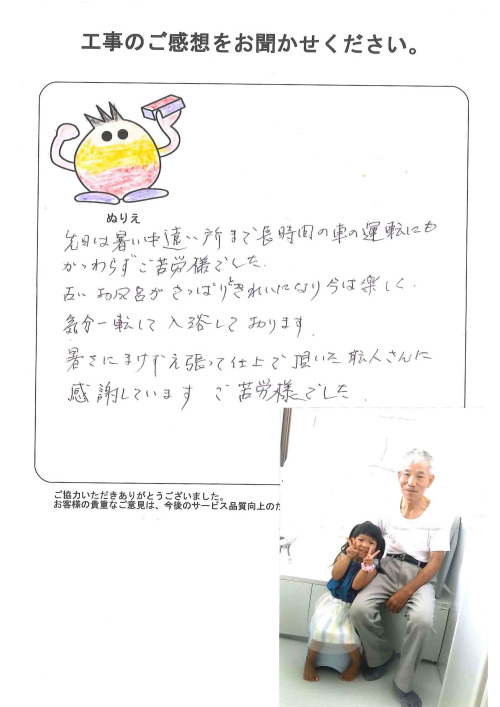 工事のご感想をお聞かせください。
ぬりえ
先日は暑い中遠い所まで長時間の車の運転にも
かかわらずご苦労様でした。
古いお風呂がさっぱりときれいになり今は楽しく、
気分一転して入浴しております。
暑さにまけず頑張って仕上て頂いた職人さんに
感謝しています ご苦労様でした.
ご協力いただきありがとうございました。
お客様の貴重なご意見は、今後のサービス品質向上のた